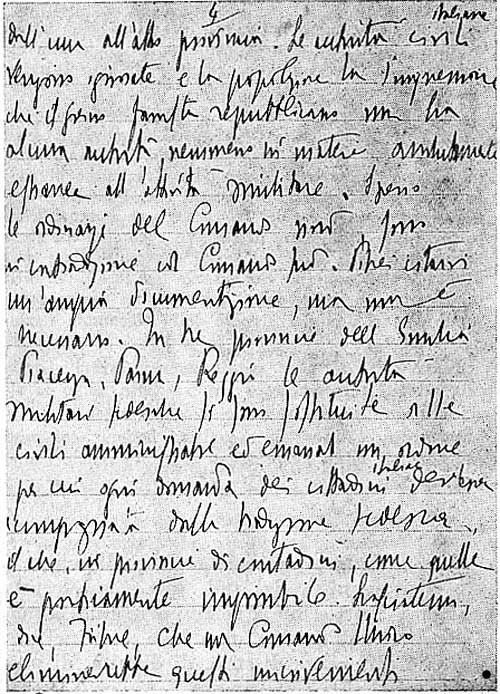 4
dall'una all'altra provincia. Le autorità civili italiane
vengono ignorate e la popolazione ha l'impressione
che il governo fascista repubblicano non ha
alcuna autorità nemmeno in materie assolutamente
estranee all'attività militare. Spesso
le ordinanze del Comando nord sono
in contraddizione col Comando sud. Potrei citarvi
un'ampia documentazione, ma non è
necessario. In tre provincie dell'Emilia
Piacenza, Parma, Reggio le autorità
militari tedesche si sono sostituite alle
civili amministrative ed emanat un ordine
per cui ogni domanda dei cittadini italiani dev'essere
accompagnata dalla traduzione tedesca,
il che, in provincie di contadini, come quelle
è praticamente impossibile.
che, Führer, che un Comando Unico
eliminerebbe questi inconvenienti